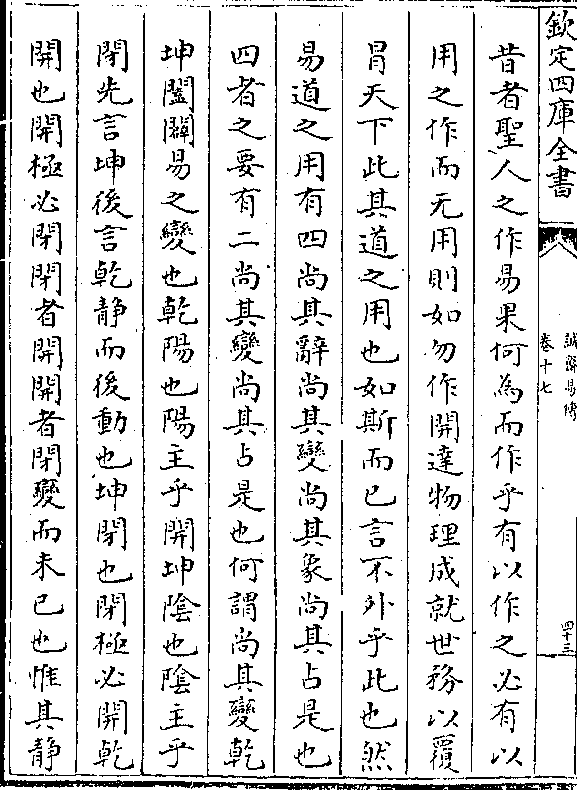 欽定四庫全書
誠齋易傳
卷十七
四十三
昔者聖人之作易果何為而作乎有以作之必有以
用之作而无用則如勿作開達物理成就世務以覆
冒天下此其道之用也如斯而已言不外乎此也然
易道之用有四尚其辭尚其變尚其象尚其占是也
四者之要有二尚其變尚其占是也何謂尚其變乾
坤闔闢易之變也乾陽也陽主乎開坤陰也陰主乎
閉先言坤後言乾静而後動也坤閉也閉極必開乾
開也開極必閉閉者開開者閉變而未已也惟其静